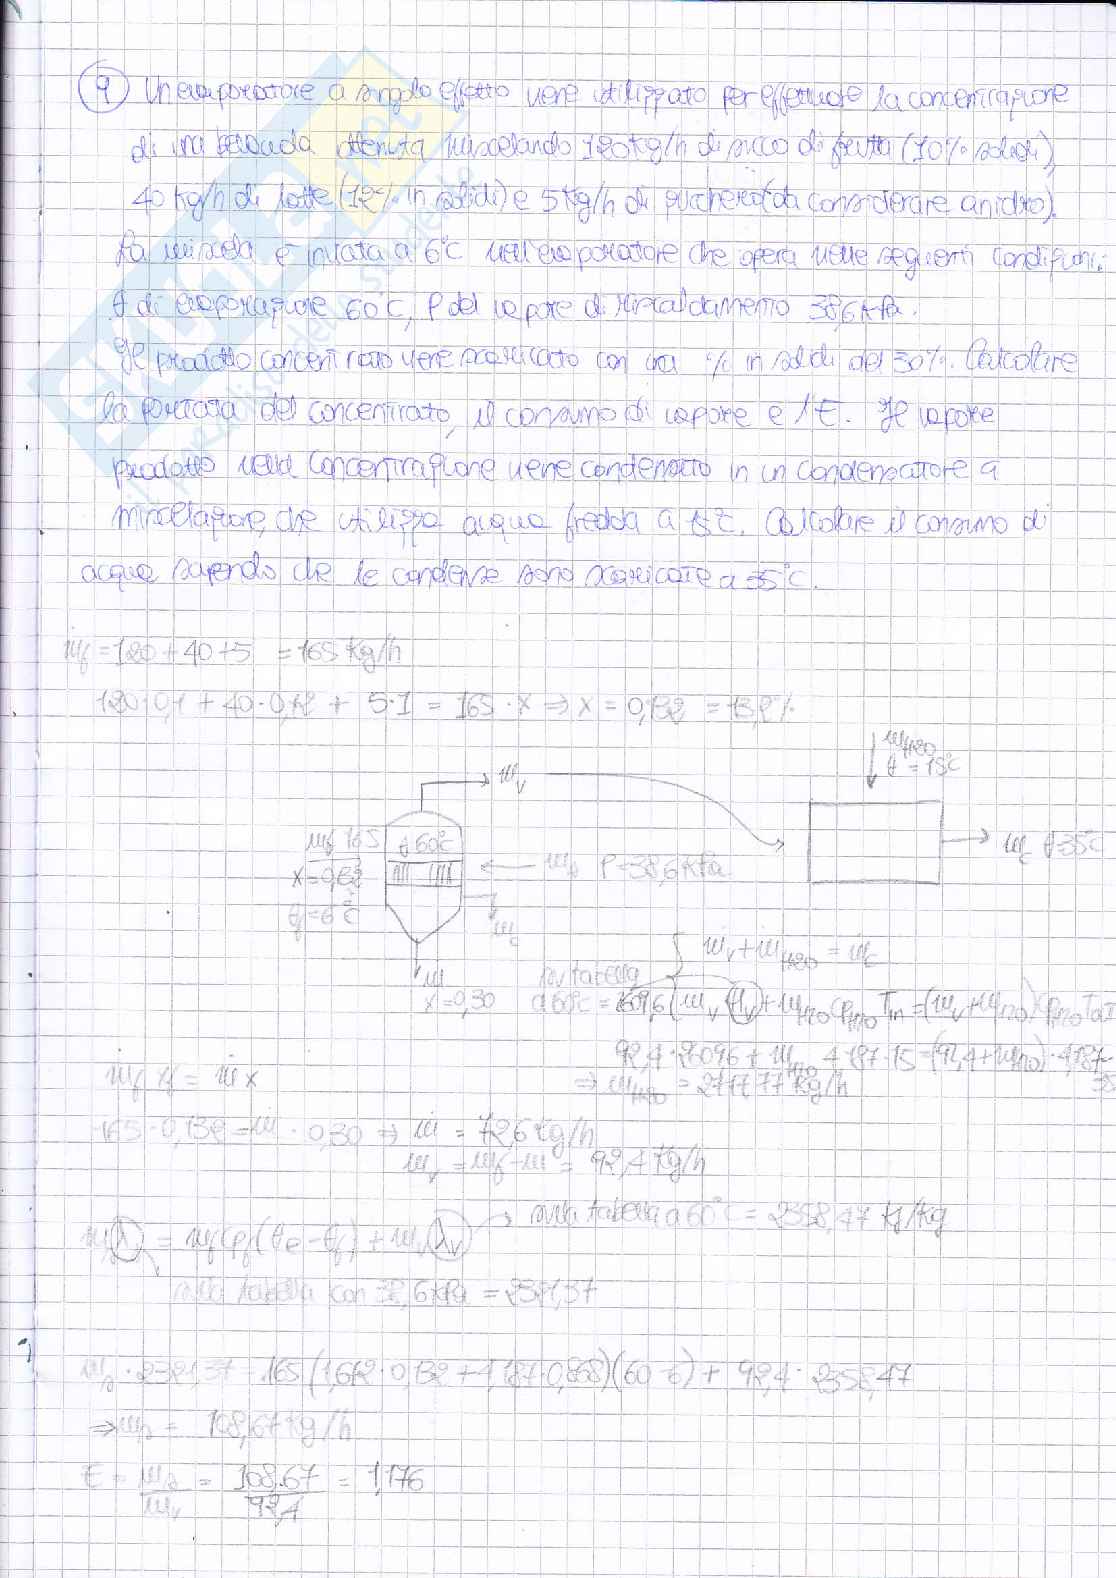 9 Un evaporatore a singolo effetto viene utilizzato per effettuare la concentrazione
di una bevanda ottenuta miscelando 120 kg/h di succo di frutta (10% solidi),
40 kg/h di latte (12% in solidi) e 5 kg/h di zucchero (da considerare anidro).
La miscela è inviata a 6°C nell'evaporatore che opera nelle seguenti condizioni:
t di evaporazione 60°C, P del vapore di riscaldamento 38,6 kPa.
Il prodotto concentrato viene scaricato con una % in solidi del 30%. Calcolare
la portata del concentrato, il consumo di vapore e l'E. Il vapore
prodotto nella concentrazione viene condensato in un condensatore a
miscelazione, che utilizza acqua fredda a 15°C. Calcolare il consumo di
acqua sapendo che le condense sono scaricate a 35°C.
ṁf = 120 + 40 + 5 = 165 kg/h
120·0,1 + 40·0,12 + 5·1 = 165·x ⇒ x = 0,132 = 13,2%
ṁH2O
t = 15°C
ṁv
ṁf 165
t 60°C
x = 0,132
tf = 6°C
ṁs P = 38,6 kPa
ṁc t 35°C
ṁc
ṁ
x = 0,30
ṁv + ṁH2O = ṁc
su tabella
a 60°C = 2609,6
ṁv Hv + ṁH2O cpH2O Tin = (ṁv + ṁH2O) cpH2O Tout
92,4·2609,6 + ṁH2O 4,187·15 = (92,4 + ṁH2O)·4,187·35
⇒ ṁH2O = 2717,77 kg/h
ṁf xf = ṁ x
165·0,132 = ṁ·0,30 ⇒ ṁ = 72,6 kg/h
ṁv = ṁf - ṁ = 92,4 kg/h
ṁs λ = ṁf cpf (te - tf) + ṁv λv
sulla tabella a 60°C = 2358,47 kJ/kg
sulla tabella con 38,6 kPa = 2321,37
ṁs · 2321,37 = 165 (1,612·0,132 + 4,187·0,868)(60-6) + 92,4·2358,47
⇒ ṁs = 108,67 kg/h
E = ṁs/ṁv = 108,67/92,4 = 1,176